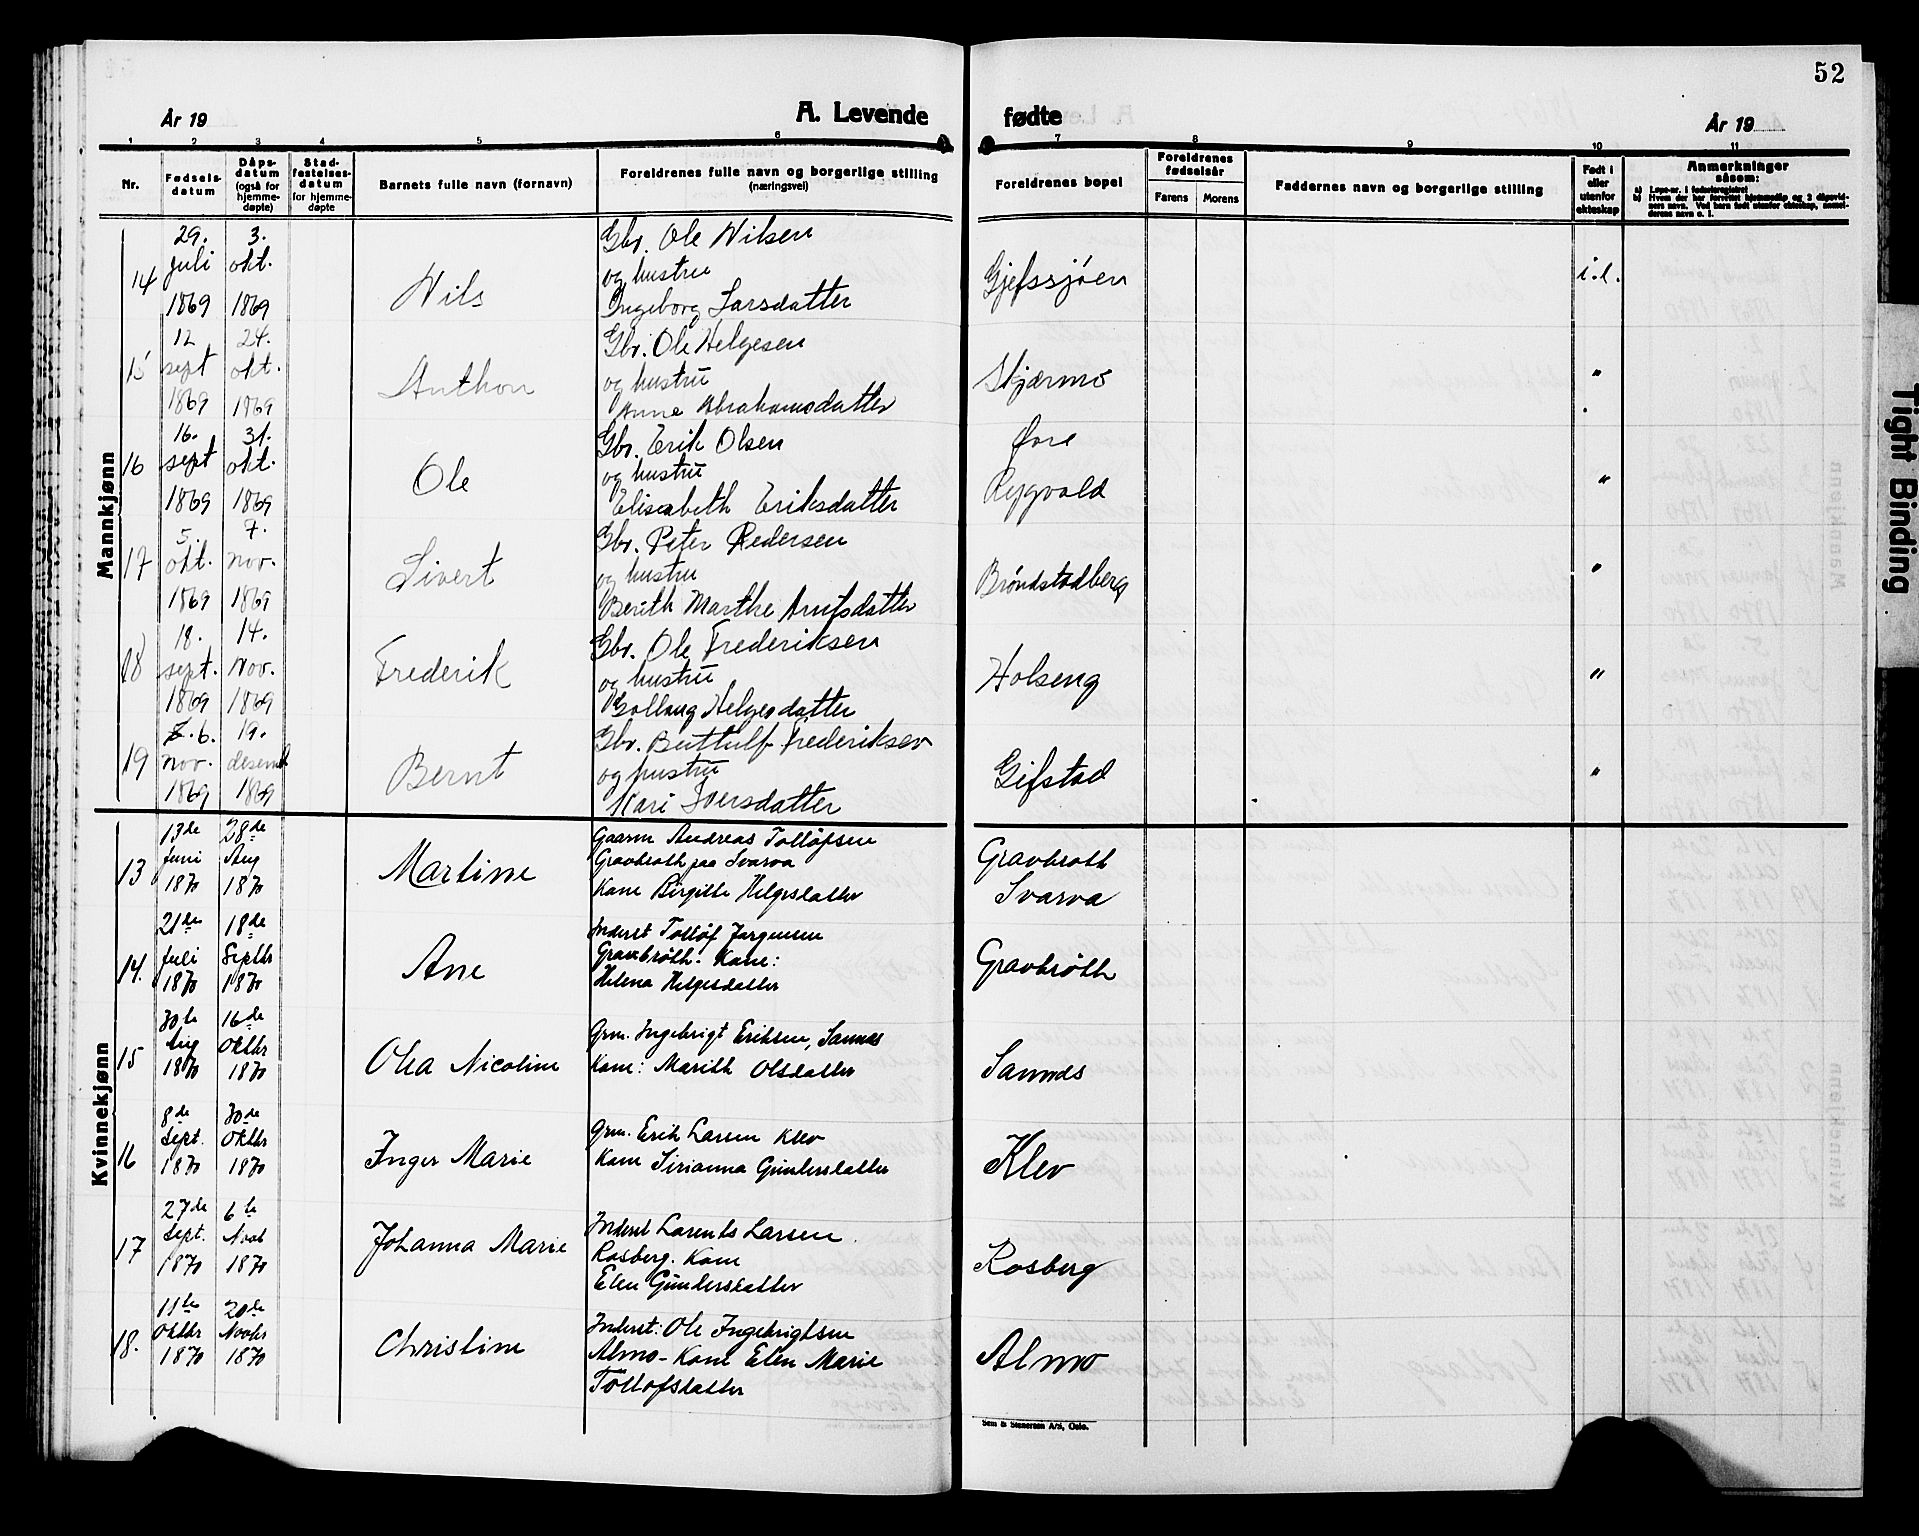 52
År 19
A. Levende
fødte
År 19
1 2 3 4 5 6 7 8 9 10 11
Nr.
Fødsels-
datum
Dåps-
datum
(også for
hjemme-
døpte)
Stad-
festelses-
datum
for hjemme-
døpte
Barnets fulle navn (fornavn)
Foreldrenes fulle navn og borgerlige stilling
(næringsvei)
Foreldrenes bopel
Foreldrenes
fødselsår
Farens Morens
Faddernes navn og borgerlige stilling
Født i
eller
utenfor
ekteskap
Anmerkninger
såsom:
Mannkjønn
14
29.
juli
1869
3.
okt.
1869
Nils
Gbr. Ole Nilsen
og hustru
Ingeborg Larsdatter
Gjefssjøen
i.e.
15
12
sept
1869
24.
okt.
1869
Anthon
Gbr. Ole Helgesen
og hustru
Anne Abrahamsdatter
Skjærmo
"
16
16.
sept
1869
31.
okt.
1869
Ole
Gbr. Erik Olsen
og hustru
Elisabeth Eriksdatter
Øvre
Rygvold
"
17
5.
okt.
1869
7.
nov.
1869
Sivert
Gbr. Peter Pedersen
og hustru
Berith Marthe Arntsdatter
Brøndstadberg
"
18
18.
sept.
1869
14.
Nov.
1869
Frederik
Gbr. Ole Frederiksen
og hustru
Gollaug Helgesdatter
Holseng
"
19
6.
nov.
1869
19.
desemb
1869
Bernt
Gbr. Buttulf Frederiksen
og hustru
Kari Iversdatter
Gifstad
"
Kvinnekjønn
13
13de
Juni
1870
28de
Aug
1870
Martine
Gaarm Andreas Tolløfsen
Gravbrøth paa Svarva
Kone Birgitte Helgesdatter
Gravbrøth
Svarva
14.
21de
Juli
1870
18de
Septbr
1870
Ane
Inderst Tolløf Jørgensen
Gravbrøth. Kone:
Helena Helgesdatter
Gravbrøth
15
30te
Aug
1870
16de
Oktbr
1870
Olea Nicoline
Grm. Ingebrigt Eriksen, Sannes
Kone: Marith Olsdatter
Sannes
16
8de
Sept.
1870
30de
Oktbr
1870
Inger Marie
Grm. Erik Larsen Klev
Kone Sirianna Gundersdatter
Klev
17
27de
Sept.
1870
6te
Novb
1870
Johanna Marie
Inderst Larents Larsen
Rosberg. Kone
Elen Gundersdatter
Rosberg
18.
11te
Oktbr
1870
20de
Novbr
1870
Christine
Inderst: Ole Ingebrigtsen
Almo - Kone Elen Marie
Tollofsdatter
Almo
Sem & Stenersen A/S, Oslo.
Tight Binding